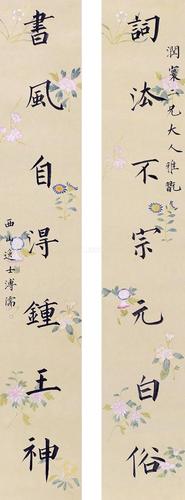 詞法不宗元白俗
潤棠一兄大人雅翫
書風自得鍾王神
西山逸士溥儒